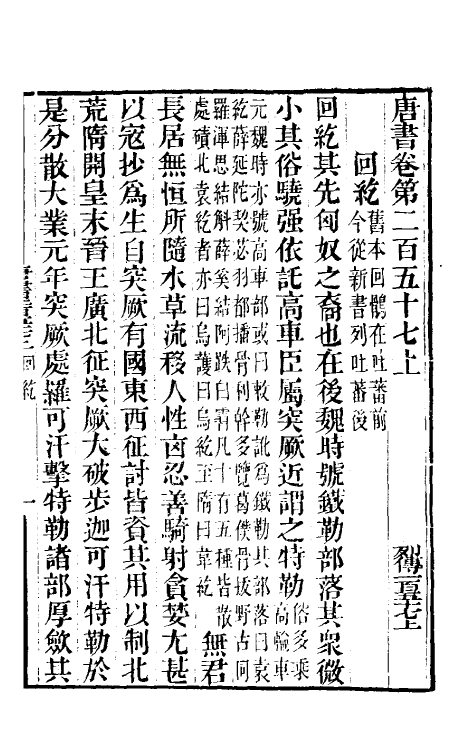 唐書卷第二百五十七上 列傳一百五十七上
回紇 舊本回鶻在吐蕃前今從新書列吐蕃後
回紇其先匈奴之裔也在後魏時號鐵勒部落其衆微
小其俗驍强依託高車臣屬突厥近謂之特勒 俗多乘高輪車
元魏時亦號高車部或曰敕勒訛爲鐵勒其部落曰袁
紇薛延陀契苾羽都播骨利幹多覽葛僕骨拔野古同
羅渾思結斛薛奚結阿跌白霫凡十有五種皆散
處磧北袁紇者亦曰烏護曰烏紇至隋曰韋紇 無君
長居無恒所隨水草流移人性凶忍善騎射貪婪尤甚
以寇抄爲生自突厥有國東西征討皆資其用以制北
荒隋開皇末晉王廣北征突厥大破步迦可汗特勒於
是分散大業元年突厥處羅可汗擊特勒諸部厚斂其
回紇
一